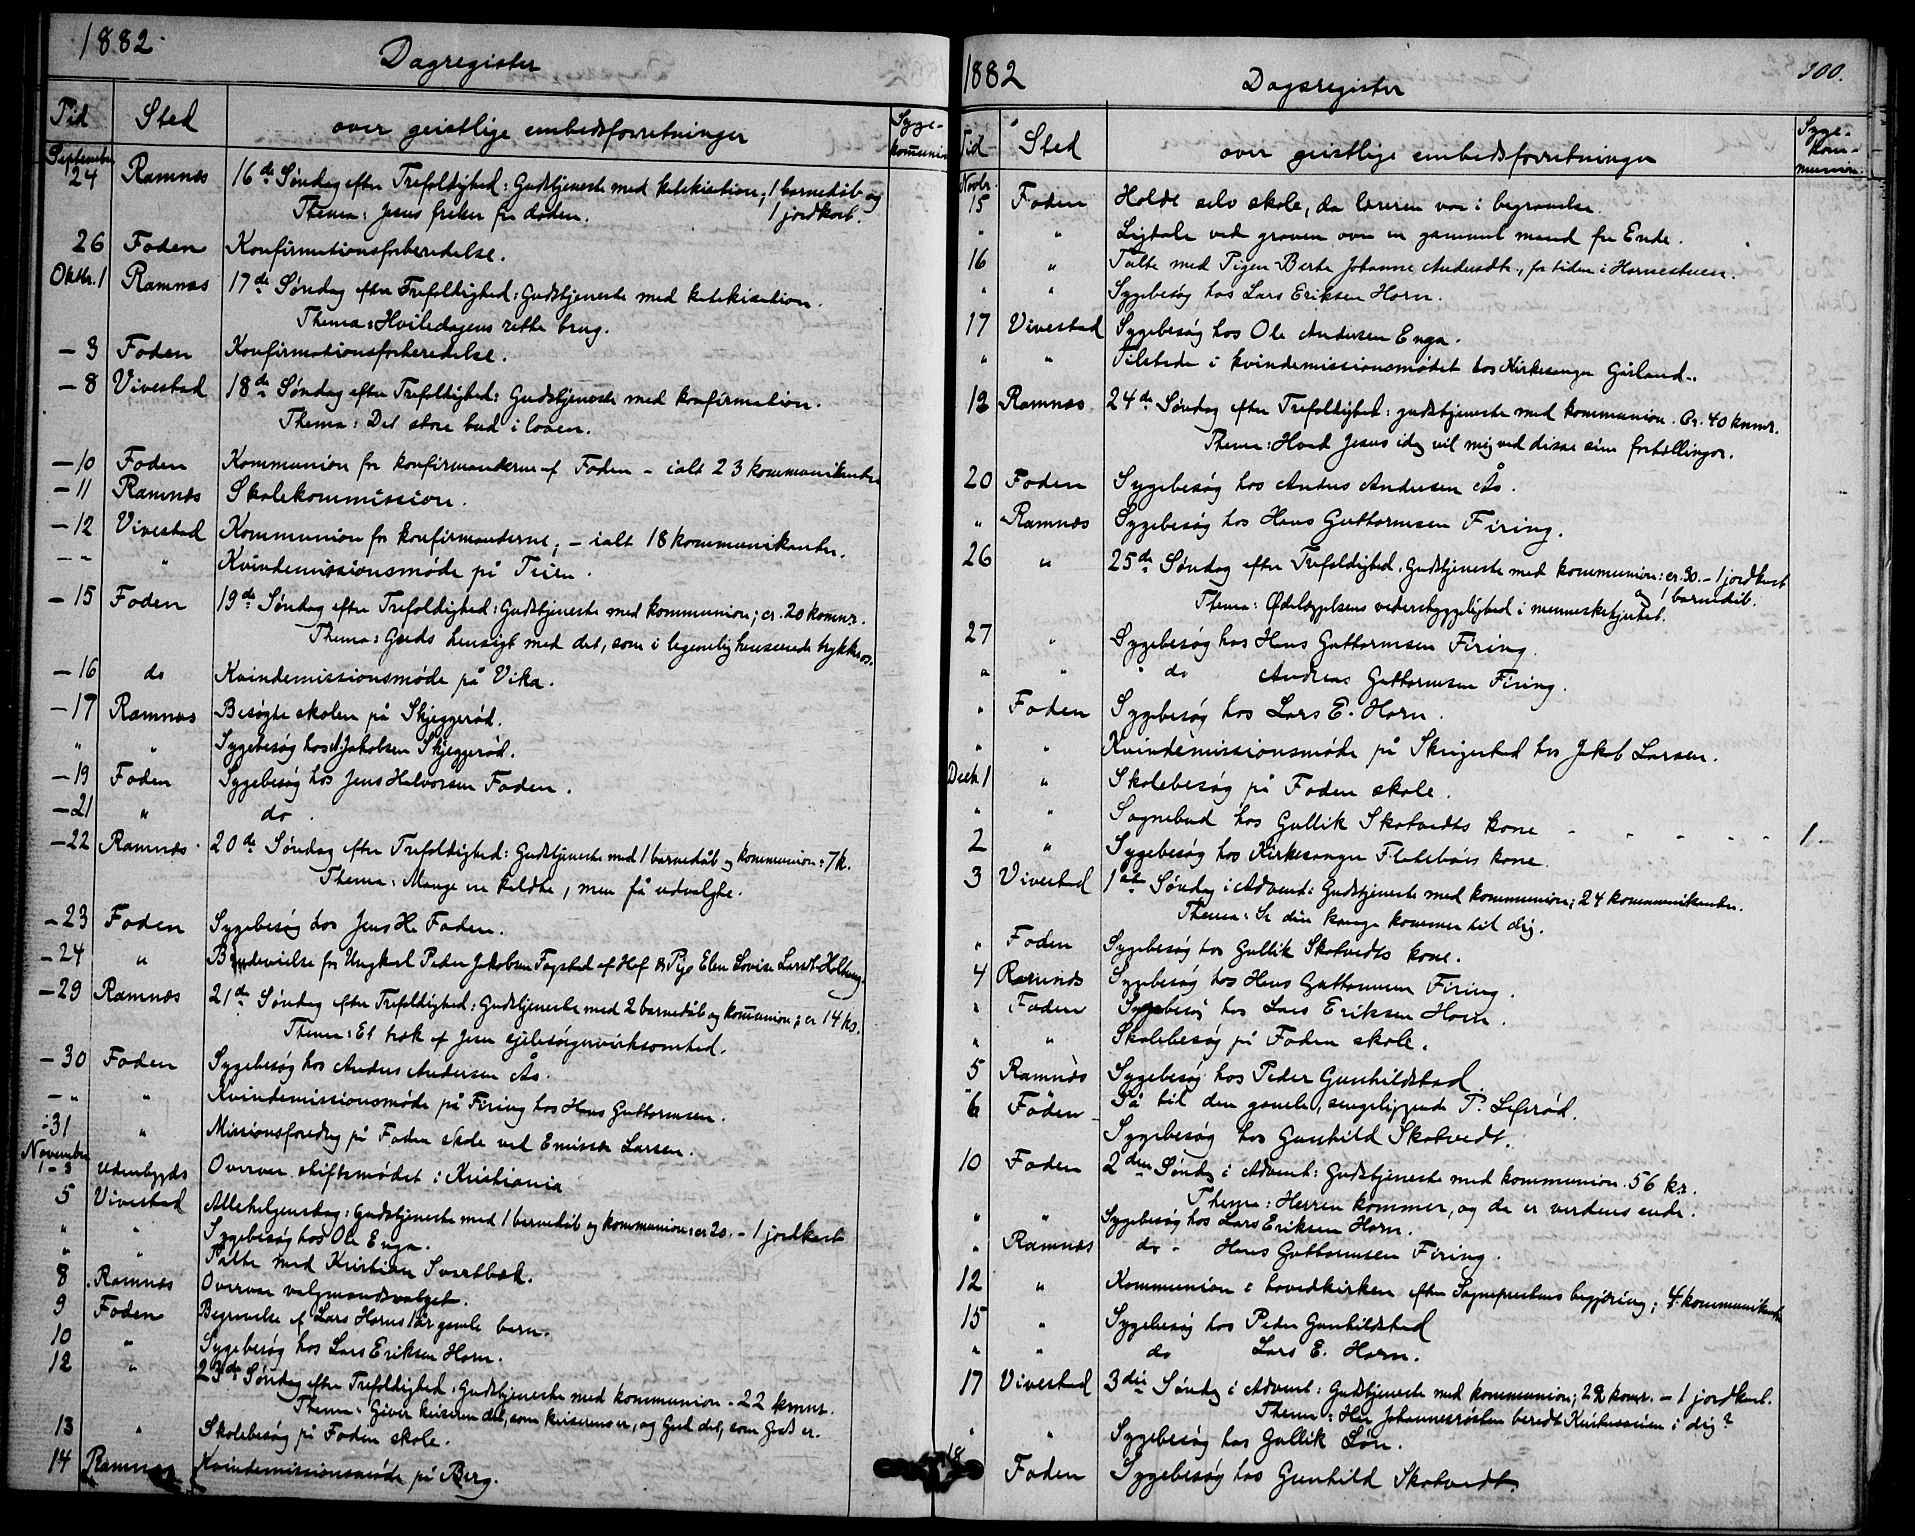 1882
Dagregister
Tid Sted over geistlige embedsforretninger Syge-
komunion
September
24 Ramnæs 16de Søndag efter Trefoldighed: Gudstjeneste med katekisation; 1 barnedåb og
Thema: Jesus frelser fra døden. 1 jordkast.
26 Foden Konfirmationsforberedelse.
Oktbr. 1 Ramnæs 17de Søndag efter Trefoldighed: Gudstjeneste med katekisation.
Thema: Hviledagens rette brug.
- 3 Foden Konfirmationsforberedelse.
- 8 Vivestad 18de Søndag efter Trefoldighed: Gudstjeneste med konfirmation.
Thema: Det store bud i loven.
- 10 Foden Kommunion for konfirmanderne af Foden - ialt 23 kommunikanter
- 11 Ramnæs Skolekommission.
- 12 Vivestad Kommunion for konfirmanderne; - ialt 18 kommunikanter.
- - " Kvindemissionsmøde på Trien.
- 15 Foden 19de Søndag efter Trefoldighed: Gudstjeneste med kommunion; cr. 20 komnr.
Thema: Guds hensigt med det, som i legemlig henseende trykker os.
- 16 do Kvindemissionsmøde på Vika.
- 17 Ramnæs Besøgte skolen på Skjeggerød.
" " Sygebesøg hos A Jakobsen Skjeggerød.
- 19 Foden Sygebesøg hos Jens Halvorsen Foden.
- 21 " do.
- 22 Ramnæs 20de Søndag efter Trefoldighed: Gudstjeneste med 1 barnedåb og kommunion: 7 k.
Thema: Mange ere kaldte, men få udvalgte.
- 23 Foden Sygebesøg hos Jens H. Foden.
- 24 " Brudevielse for Ungkarl Peder Jakobsen Fogstad af Hof & Pige Elen Lovise Larsdt. Holtung.
- 29 Ramnæs 21de Søndag efter Trefoldighed: Gudstjeneste med 2 barnedåb og kommunion; cr 14 ko.
Thema: Et træk af Jesu sjælesørgervirksomhed.
- 30 Foden Sygebesøg hos Anders Andersen Ås.
- " " Kvindemissionsmøde på Firing hos Hans Guttormsen.
- 31 " Missionsforedrag på Foden skole ved Emissær Larsen.
November
1-3 Udenbygds Overvar stiftsmødet i Kristiania
5 Vivestad Allehelgensdag: Gudstjeneste med 1 barnedåb og kommunion: cr 20. - 1 jordkast
" " Sygebesøg hos Ole Enga.
" " Talte med Kristian Svartbæk.
8 Ramnæs Overvar valgmandsvalget.
9 Foden Begravelse af Lars Horns 1 år gamle barn.
10 " Sygebesøg hos Lars Eriksen Horn.
12 " 23de Søndag efter Trefoldighed. Gudstjeneste med kommunion - 22 kmnr.
Thema: Giver keiseren det, som keiserens er, og Gud det, som Guds er.
13 " Skolebesøg på Foden skole.
14 Ramnæs Kvindemissionsmøde på Berg.
1882 Dagsregister 300.
Tid Sted over geistlige embedsforretninger Syge-
kom-
munion.
Novbr.
15 Foden Holdt selv skole, da læreren var i begravelse.
" " Ligtale ved graven over en gammel mand fra Ende.
16 " Talte med Pigen Berte Johanne Andersdtr., for tiden i Hornestuen.
" " Sygebesøg hos Lars Eriksen Horn.
17 Vivestad Sygebesøg hos Ole Andersen Enga.
" " Tilstede i kvindemissionsmødet hos Kirkesanger Gårland.
12 Ramnæs 24de Søndag efter Trefoldighed: gudstjeneste med kommunion. Cr. 40 kmnr.
Thema: Hvad Jesus idag vil mig ved disse sine fortællinger.
20 Foden Sygebesøg hos Anders Andersen Ås.
" Ramnæs Sygebesøg hos Hans Guttormsen Firing.
26 " 25de Søndag efter Trefoldighed. Gudstjeneste med kommunion: cr. 30. - 1 jordkast
og 1 barnedåb.
Thema: Ødelæggelsens vederstyggelighed i menneskehjertet.
27 " Sygebesøg hos Hans Guttormsen Firing.
" " do Andreas Guttormsen Firing.
" Foden Sygebesøg hos Lars E. Horn.
" " Kvindemissionsmøde på Skrigestad hos Jakob Larsen.
Decbr. 1 " Skolebesøg på Foden skole.
" " Sognebud hos Gullik Skotvedts kone - - - - 1.
2 " Sygebesøg hos Kirkesanger Flatebøs kone.
3 Vivestad 1ste Søndag i Advent: Gudstjeneste med kommunion; 24 kommunikanter.
Thema: Se din konge kommer til dig.
" Foden Sygebesøg hos Gullik Skotvedts kone.
4 Ramnæs Sygebesøg hos Hans Guttormsen Firing.
" Foden Sygebesøg hos Lars Eriksen Horn.
" " Skolebesøg på Foden skole.
5 Ramnæs Sygebesøg hos Peder Gunhildstad.
6 Foden Så til den gamle, sengeliggende P. Lefsrød.
Sygebesøg hos Gunhild Skotvedt.
10 Foden 2den Søndag i Advent: Gudstjeneste med kommunion. 56 kr.
Thema: Herren kommer, og da er verdens ende.
" " Sygebesøg hos Lars Eriksen Horn.
" Ramnæs do - Hans Guttormsen Firing.
12 " Kommunion i hovedkirken efter Sognepræstens begjæring; 4 kommunikanter
15 " Sygebesøg hos Peder Gunhildstad
" " do Lars E. Horn.
17 Vivestad 3die Søndag i Advent: Gudstjeneste med kommunion; 22 komnr. - 1 jordkast.
Thema: Har Johannesrøsten beredt Kristusveien i dig?
" " Sygebesøg hos Gullik Løn.
18 Foden Sygebesøg hos Gunhild Skotvedt.